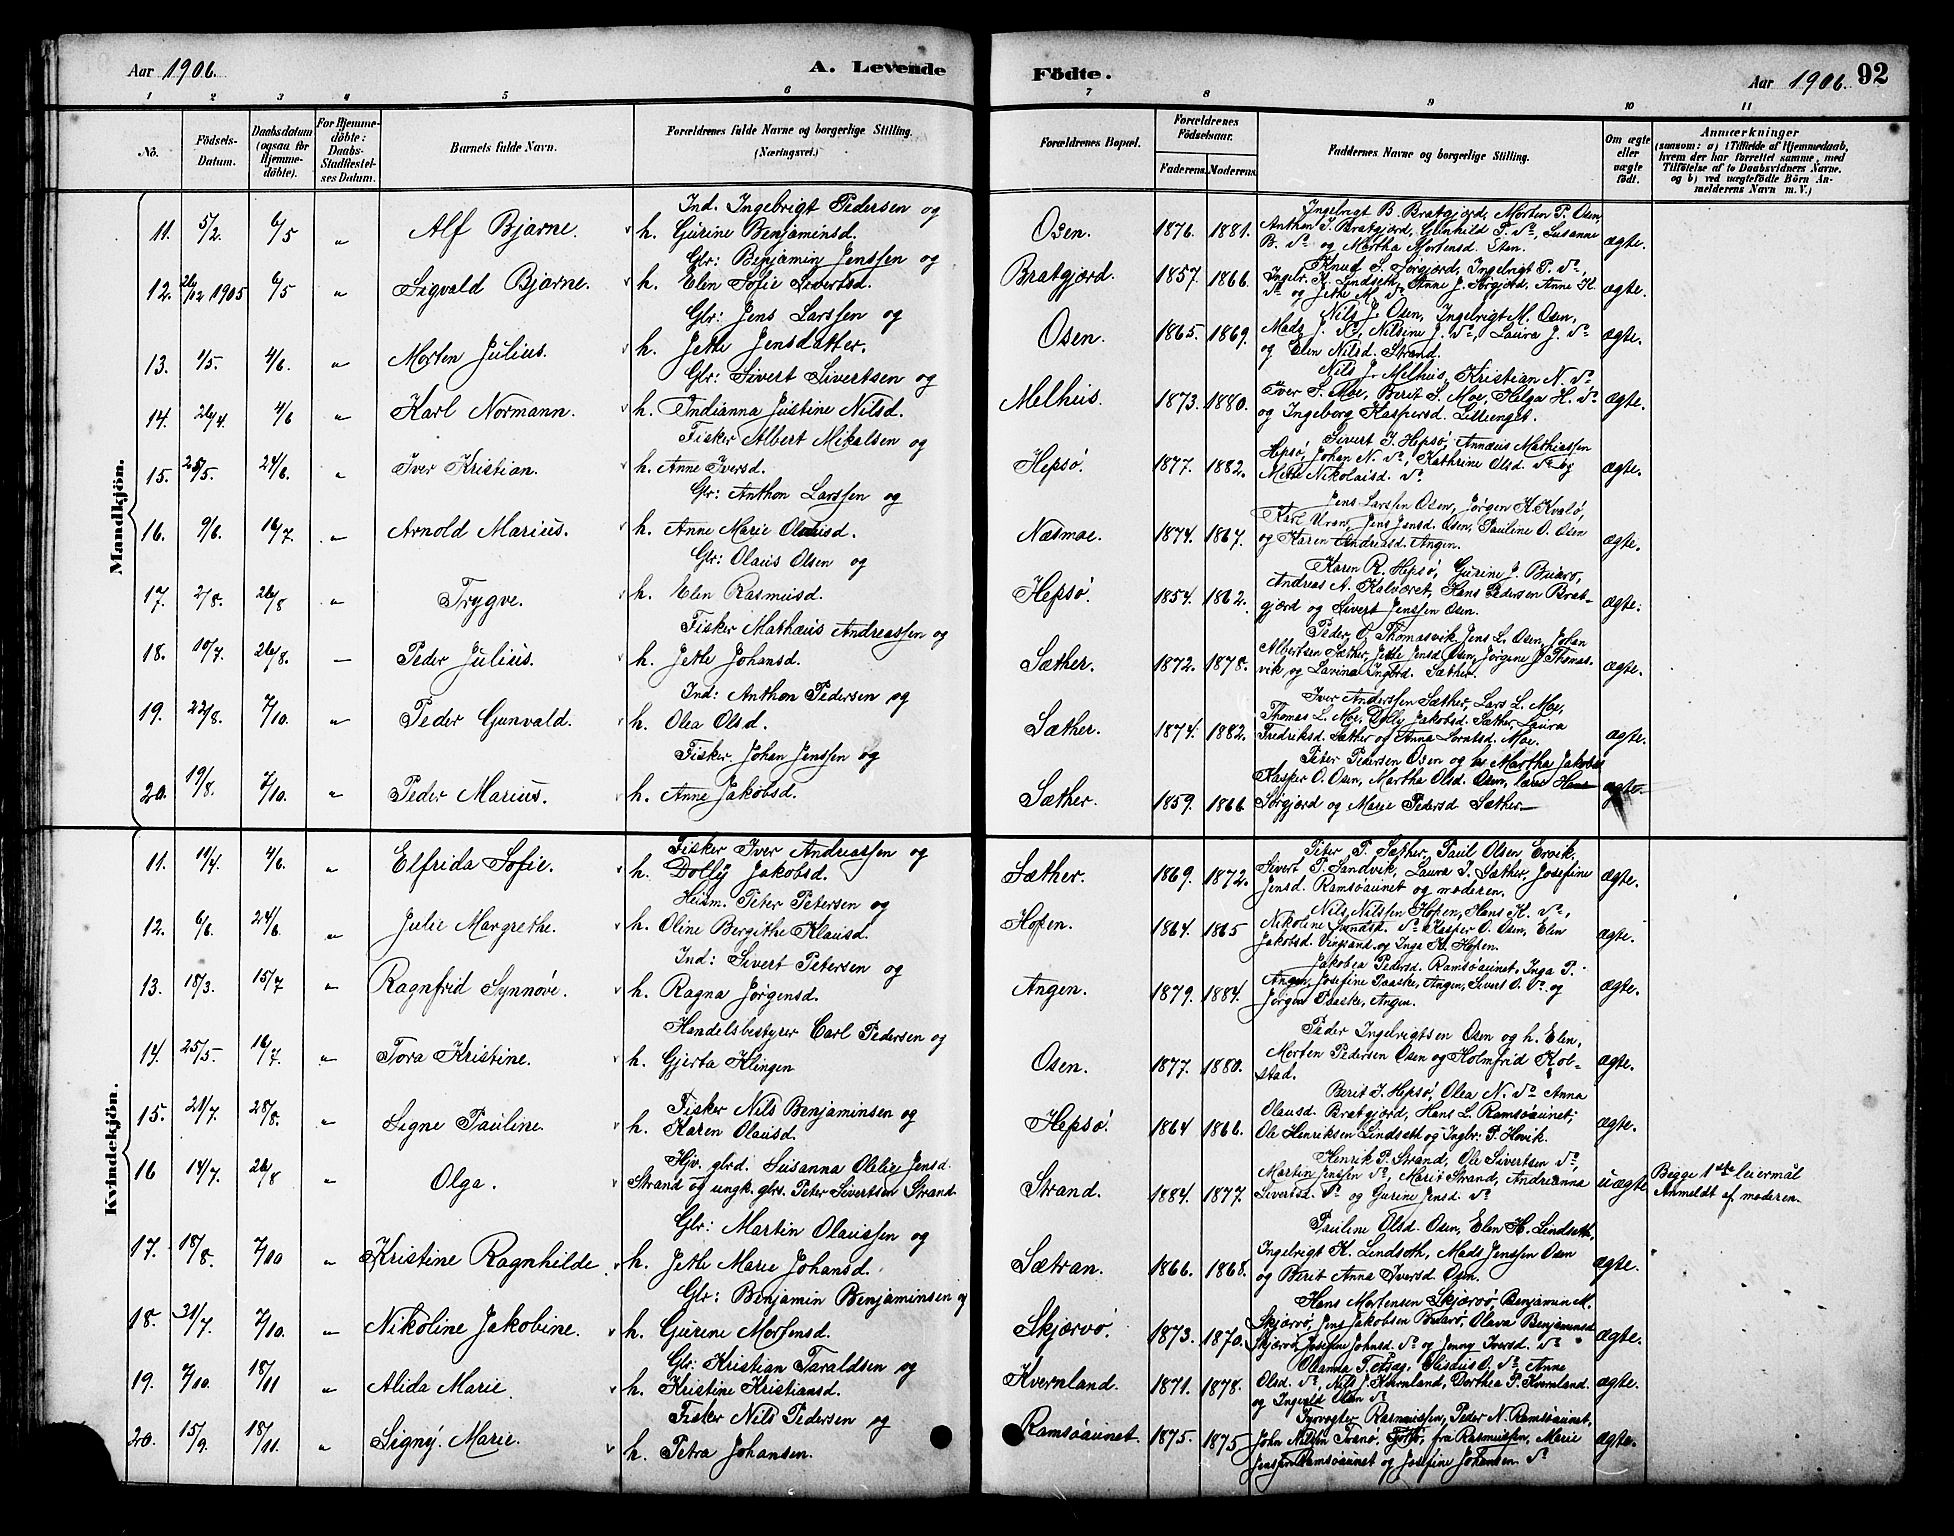 Aar 1906. A. Levende Födte. Aar 1906. 92
1 2 3 4 5 6 7 8 9 10 11
No. Födsels-Datum. Daabsdatum (ogsaa for Hjemmedöbte). For Hjemmedöbte: Daabs-Stadfæstelses Datum. Barnets fulde Navn. Forældrenes fulde Navne og borgerlige Stilling. (Næringsvei.) Forældrenes Bopæl. Forældrenes Födselsaar. Faderens. Moderens. Faddernes Navne og borgerlige Stilling. Om ægte eller uægte födt. Anmærkninger (saasom: a) i Tilfælde af Hjemmedaab, hvem der har forrettet samme, med Tilföielse af to Daabsvidners Navne, og b) ved uægtefödte Börn Anmelderens Navn m. V.)
Mandkjön.
11. 5/2. 6/5 " Alf Bjarne. Ind. Ingebrigt Pedersen og h. Gurine Benjaminsd. Osen. 1876. 1881. Ingebrigt B. Bratgjærd, Morten P. Osen, Anthon J. Bratgjærd, Gunhild P. do, Susanne B. do og Martha Mortensd. Sten. ægte.
12. 26/12 1905 6/5 " Sigvald Bjarne. Glr: Benjamin Jenssen og h. Elen Sofie Sivertsd. Bratgjærd. 1857. 1866. Knut S. Sørgjærd, Ingebrigt P. do, Ingebr. K. Lindseth, Anne J. Sørgjærd, Anne K. do og Jette M. do ægte.
13. 1/5. 4/6. " Morten Julius. Glr: Jens Larssen og h. Jette Jensdatter. Osen. 1865. 1869. Nils J. Osen, Ingebrigt M. Osen, Mads J. do, Nilsine J. do, Laura J. do og Elen Nilsd. Strand. ægte.
14. 26/4. 4/6 " Karl Normann. Glr: Sivert Sivertsen og h. Indianna Justine Nilsd. Melhus. 1873. 1880. Nils J. Melhus, Kristian N. do Iver S. Moe, Berit S. Moe, Helga H. do og Ingeborg Kaspersd. Lilleenget. ægte.
15. 25/5. 24/6. " Iver Kristian. Fisker Albert Mikalsen og h. Anne Iversd. Hepsø. 1877. 1882. Sivert J. Hepsø, Annæus Mathiassen Hepsø, Johan N. do, Kathrine Olsd. do og Mette Nikolaisd. do ægte.
16. 9/6. 16/7 " Arnold Marius. Glr: Anthon Larssen og h. Anne Marie Olausd. Næsmoe. 1874. 1867. Jens Larssen Osen, Jørgen K. Kvalø, Karl Uran, Jens Jensd. Osen, Pauline O. Osen og Karen Andreasd. Angen. ægte.
17. 2/8. 26/8 " Trygve. Glr: Olaus Olsen og h. Elen Rasmusd. Hepsø. 1854. 1862. Karen R. Hepsø, Gurine J. Buarø, Andreas A. Kalværet, Hans Pedersen Bratgjærd og Sivert Jenssen Osen. ægte.
18. 10/7 26/8. — Peder Julius. Fisker Mathæus Andreassen og h. Jette Johansd. Sæther. 1872. 1878. Peder O. Thomasvik, Jens L. Osen, Johan Albertsen Sæther, Jette Jensd Osen, Jørgine J. Thomasvik og Lavina Ingbrd. Sæther. ægte.
19. 22/8. 7/10. " Peder Gunvald. Ind: Anthon Pedersen og h. Olea Olsd. Sæther. 1874. 1882. Iver Anderssen Sæther, Lars L. Moe, Thomas L. Moe, Dolly Jakobsd. Sæther, Laura Fredriksd. Sæther og Anna Lorntsd. Moe. ægte.
20. 19/8. 7/10. " Peder Marius. Fisker Johan Jenssen og h. Anne Jakobsd. Sæther. 1859. 1866 Peter Pedersen Osen og Martha Jakobsd Kasper O. Osen, Martha Olsd. Osen, Hans Sørgjærd og Marie Pedersd Sæther ægte.
Kvindekjön.
11. 11/4. 4/6. " Elfrida Sofie. Fisker Iver Andreassen og h. Dolly Jakobsd. Sæther. 1869. 1872. Peter P. Sæther, Paul Olsen Ervik, Sivert P. Sandvik, Laura I. Sæther, Josefine Jensd. Ramsøaunet og moderen. ægte.
12. 6/6. 24/6. " Julie Margrethe. Heism. Peter Petersen og h. Oline Bergithe Klausd. Hopen. 1864. 1865 Nils Nilssen Hopen, Hans K. do, Nikoline do Kasper O. Osen, Elen Jakobsd. Vingsand og Inga K. Hopen. ægte.
13. 18/3. 15/7 " Ragnfrid Synnöve. Ind: Sivert Petersen og h. Ragna Jørgensd. Angen. 1879. 1884. Jakobea Pedersd. Ramsøaunet, Inga P. Angen, Josefine Paaske, Angen, Sivert O. do og Jørgen Paaske, Angen. ægte.
14. 25/5. 16/7. " Tora Kristine. Handelsbestyrer Carl Pedersen og h. Gjerta Klingen Osen. 1877. 1880. Peder Ingebrigtsen Osen og h. Elen, Morten Pedersen Osen og Holmfrid Kolstad. ægte.
15. 21/7. 28/8. " Signe Pauline. Fisker Nils Benjaminsen og h. Karen Olausd. Hepsø. 1864 1866. Berit J. Hepsø, Olea N. do Anna Olausd. Bratgjærd, Hans L. Ramsøaunet, Ole Henriksen Lindseth og Ingbr: P. Hovik. ægte.
16 14/7. 26/8 " Olga. Hjv. glrd. Susanna Otelie Jensd. Strand og ungk. glrs. Peter Sivertsen Strand Strand. 1884. 1877. Henrik P. Strand, Ole Sivertsen do, Martin Jenssen do, Marit Strand, Andrianna Sivertsd. do og Gurine Jensd. do uægte Begge 1ste leiermål Anmeldt af moderen.
17. 18/8. 7/10 " Kristine Ragnhilde. Glr: Martin Olaussen og h. Jette Marie Johansd. Sætran. 1866. 1868. Pauline Olsd. Osen, Elen H. Lindseth, Ingebrigt K. Lindseth, Mads Jenssen Osen og Berit Anna Iversd. Osen. ægte.
18. 31/7. 7/10. " Nikoline Jakobine. Glr: Benjamin Benjaminsen og h. Gurine Mortensd. Skjærvø. 1873. 1870. Hans Mortensen Skjærvø, Benjamin M. Skjærvø, Jens Jakobsen Buarø, Olava Benjaminsd. Skjærvø, Josefine Johnsd. do og Jenny Iversd. do ægte.
19. 7/10. 18/11 " Alida Marie. Glr: Kristian Taraldsen og h. Kristine Kristiansd. Kvernland. 1871. 1878. Olanna T. Aseg, O. do, Anne Olsd. do, Nils J. Kvernland, Dorthea P. Kvernland og Ingvald Olsen do ægte.
20. 15/9. 18/11. " Signý. Marie. Fisker Nils Pedersen og h. Petra Johansen. Ramsøaunet. 1875. 1875 Fyrvogter Rasmussen, Peder N. Ramsøaunet, John Nilsen Tranö, fru Rasmussen, Marie Jenssen Ramsøaunet og Josefine Johansen do ægte.